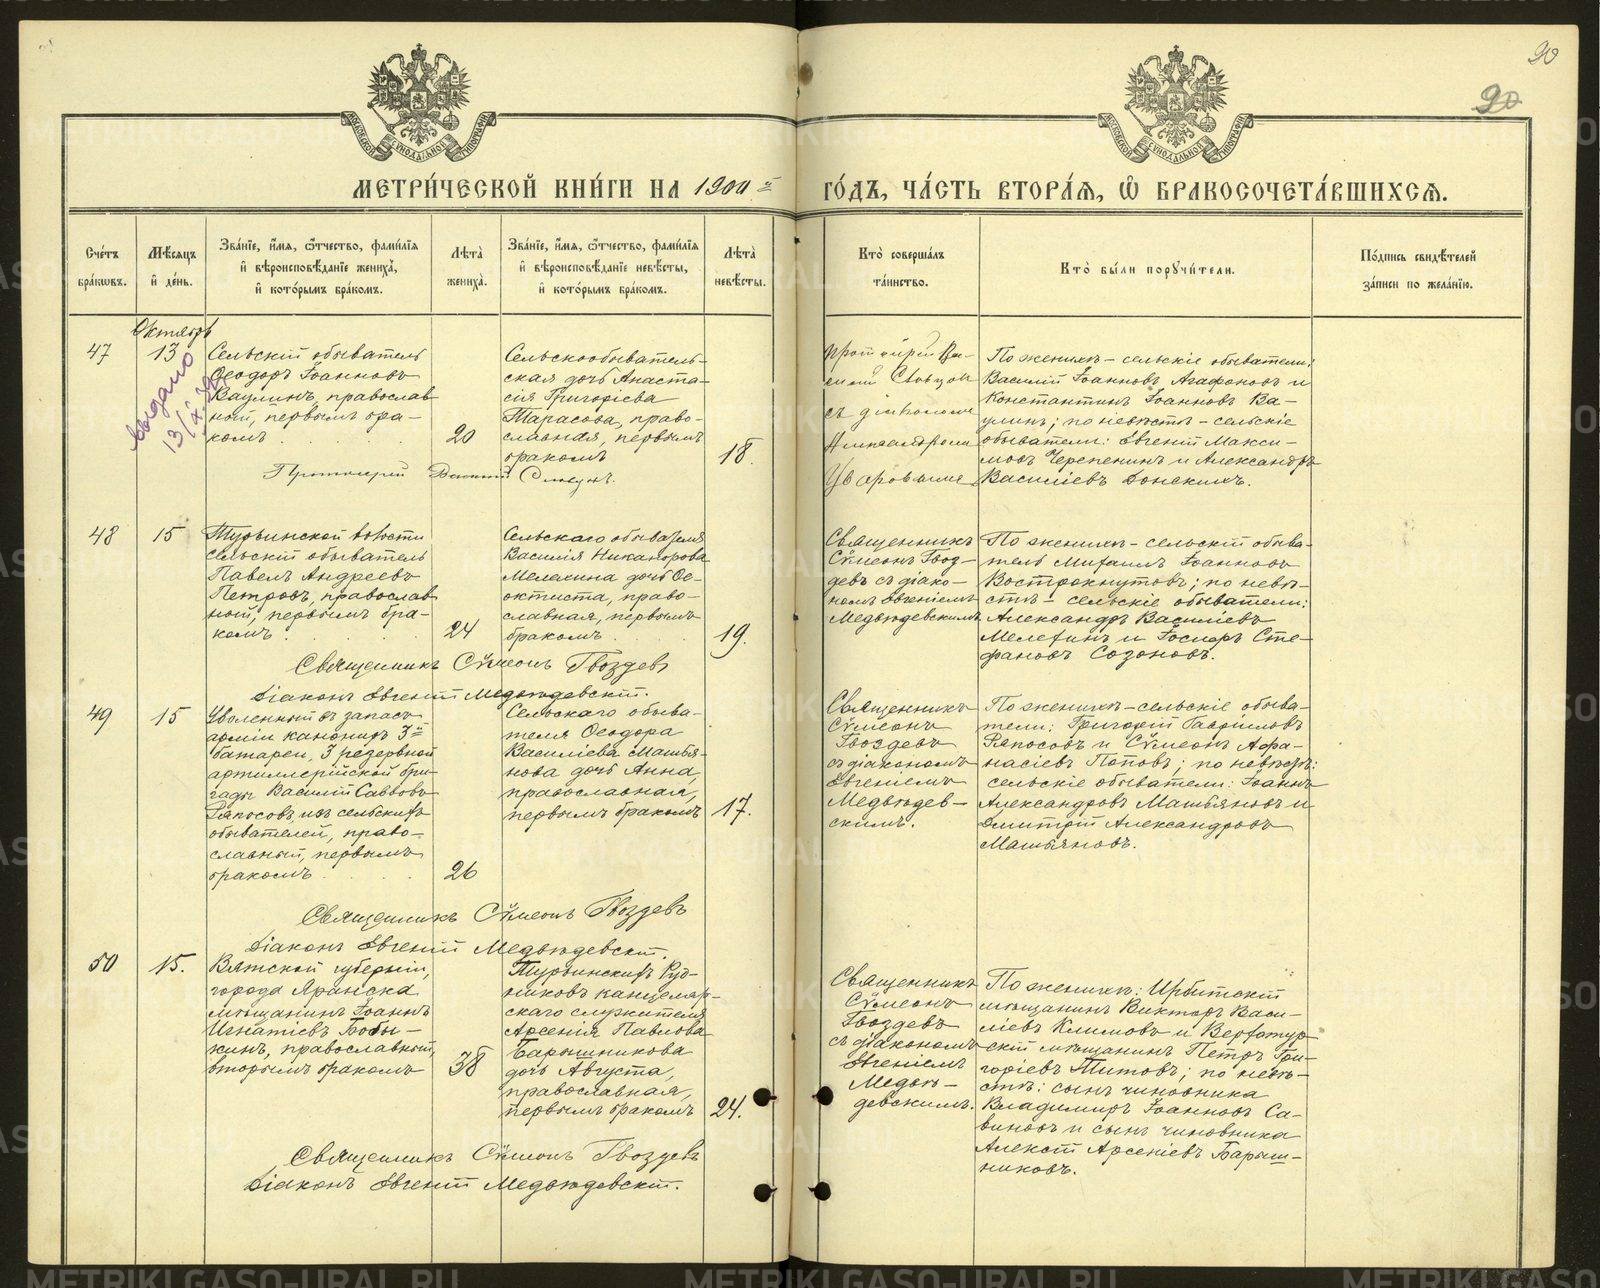 90
90
МЕТРИ́ЧЕСКОЙ КНИ́ГИ НА 1900 й
ГО́ДЪ, ЧА́СТЬ ВТОРА́Ѧ, Ѿ БРАКОСОЧЕТА́ВШИХСѦ.
Сче́тъ бра́кѡвъ.
Мѣ́сѧцъ и҆ де́нь.
Зва́нїе, и҆́мѧ, ѻ҆́тчество, фами́лїѧ
и҆ вѣроисповѣ́данїе жениха̀,
и҆ кото́рымъ бра́комъ.
Лѣта̀ жениха̀.
Зва́нїе, и҆́мѧ, ѻ҆́тчество, фами́лїѧ
и҆ вѣроисповѣ́данїе невѣ́сты,
и҆ кото́рымъ бра́комъ.
Лѣта̀ невѣ́сты.
Кто̀ соверша́лъ та́инство.
Кто̀ бы́ли порꙋчи́тели.
По́дпись свидѣ́телей
за́писи по жела́нїю.
Октябрь
47
13
выдано
13/IX.
Сельскій обыватель
Ѳеодоръ Іоанновъ
Ваулинъ, православ
ный, первымъ бра-
комъ
20
Сельскообыватель-
ская дочь Анаста-
сія Григоріева
Тарасова, право-
славная, первымъ
бракомъ
18.
Протоіерей Ва-
силій Словцовъ
съ діакономъ
Александромъ
Уваровымъ
По женихѣ – сельскіе обыватели:
Василій Іоанновъ Агафоновъ и
Константинъ Іоанновъ Ва-
улинъ; по невѣстѣ – сельскіе
обыватели: Евгеній Макси-
мовъ Черепенинъ и Александръ
Василіевъ Донскихъ.
Протоіерей Василій Словцовъ.
48
15
Турьинской волости
сельскій обыватель
Павелъ Андреевъ
Петровъ, православ
ный, первымъ бра-
комъ
24
Сельскаго обывателя
Василія Никанорова
Мелехина дочь Ѳе-
октиста, право-
славная, первымъ
бракомъ
19.
Священникъ
Сѵмеонъ Гвоз-
девъ съ діако-
номъ Евгеніемъ
Медвѣдевскимъ
По женихѣ – сельскій обыва-
тель Михаилъ Іоанновъ
Вострокнутовъ; по невѣ-
стѣ – сельскіе обыватели:
Александръ Василіевъ
Мелехинъ и Госифъ Сте-
фановъ Созоновъ.
Священникъ Сѵмеонъ Гвоздевъ
Діаконъ Евгеній Медвѣдевскій.
49
15
Уволенный въ запасъ
арміи канониръ 3й
батареи, 3 резервной
артиллерійской бри-
гады Василій Саввовъ
Рапосовъ изъ сельскихъ
обывателей, право-
славный, первымъ
бракомъ
26
Сельскаго обыва-
теля Ѳеодора
Василіева Машья-
нова дочь Анна,
православная,
первымъ бракомъ
17.
Священникъ
Сѵмеонъ
Гвоздевъ
съ діакономъ
Евгеніемъ
Медвѣдев-
скимъ.
По женихѣ – сельскіе обыва-
тели: Григорій Гавриловъ
Рапосовъ и Сѵмеонъ Афа-
насіевъ Поповъ; по невѣстѣ:
сельскіе обыватели: Іоаннъ
Александровъ Машьяновъ и
Дмитрій Александровъ
Машьяновъ.
Священникъ Сѵмеонъ Гвоздевъ
Діаконъ Евгеній Медвѣдевскій.
50
15.
Вятской губерніи,
города Яранска
мѣщанинъ Іоаннъ
Игнатіевъ Бобы-
кинъ, православный,
вторымъ бракомъ
38
Турьинскихъ Руд-
никовъ канцеляр-
скаго служителя
Арсенія Павлова
Барышникова
дочь Августа,
православная,
первымъ бракомъ
24.
Священникъ
Сѵмеонъ
Гвоздевъ
съ діакономъ
Евгеніемъ
Медвѣ-
девскимъ.
По женихѣ: Ирбитскій
мѣщанинъ Викторъ Васи-
ліевъ Климовъ и Верхотур-
скій мѣщанинъ Петръ Гри-
горіевъ Титовъ; по невѣ-
стѣ: сынъ чиновника
Владимиръ Іоанновъ Са-
виновъ и сынъ чиновника
Алексѣй Арсеніевъ Барыш-
никовъ.
Священникъ Сѵмеонъ Гвоздевъ
Діаконъ Евгеній Медвѣдевскій.
METRIKI.GASO-URAL.RU